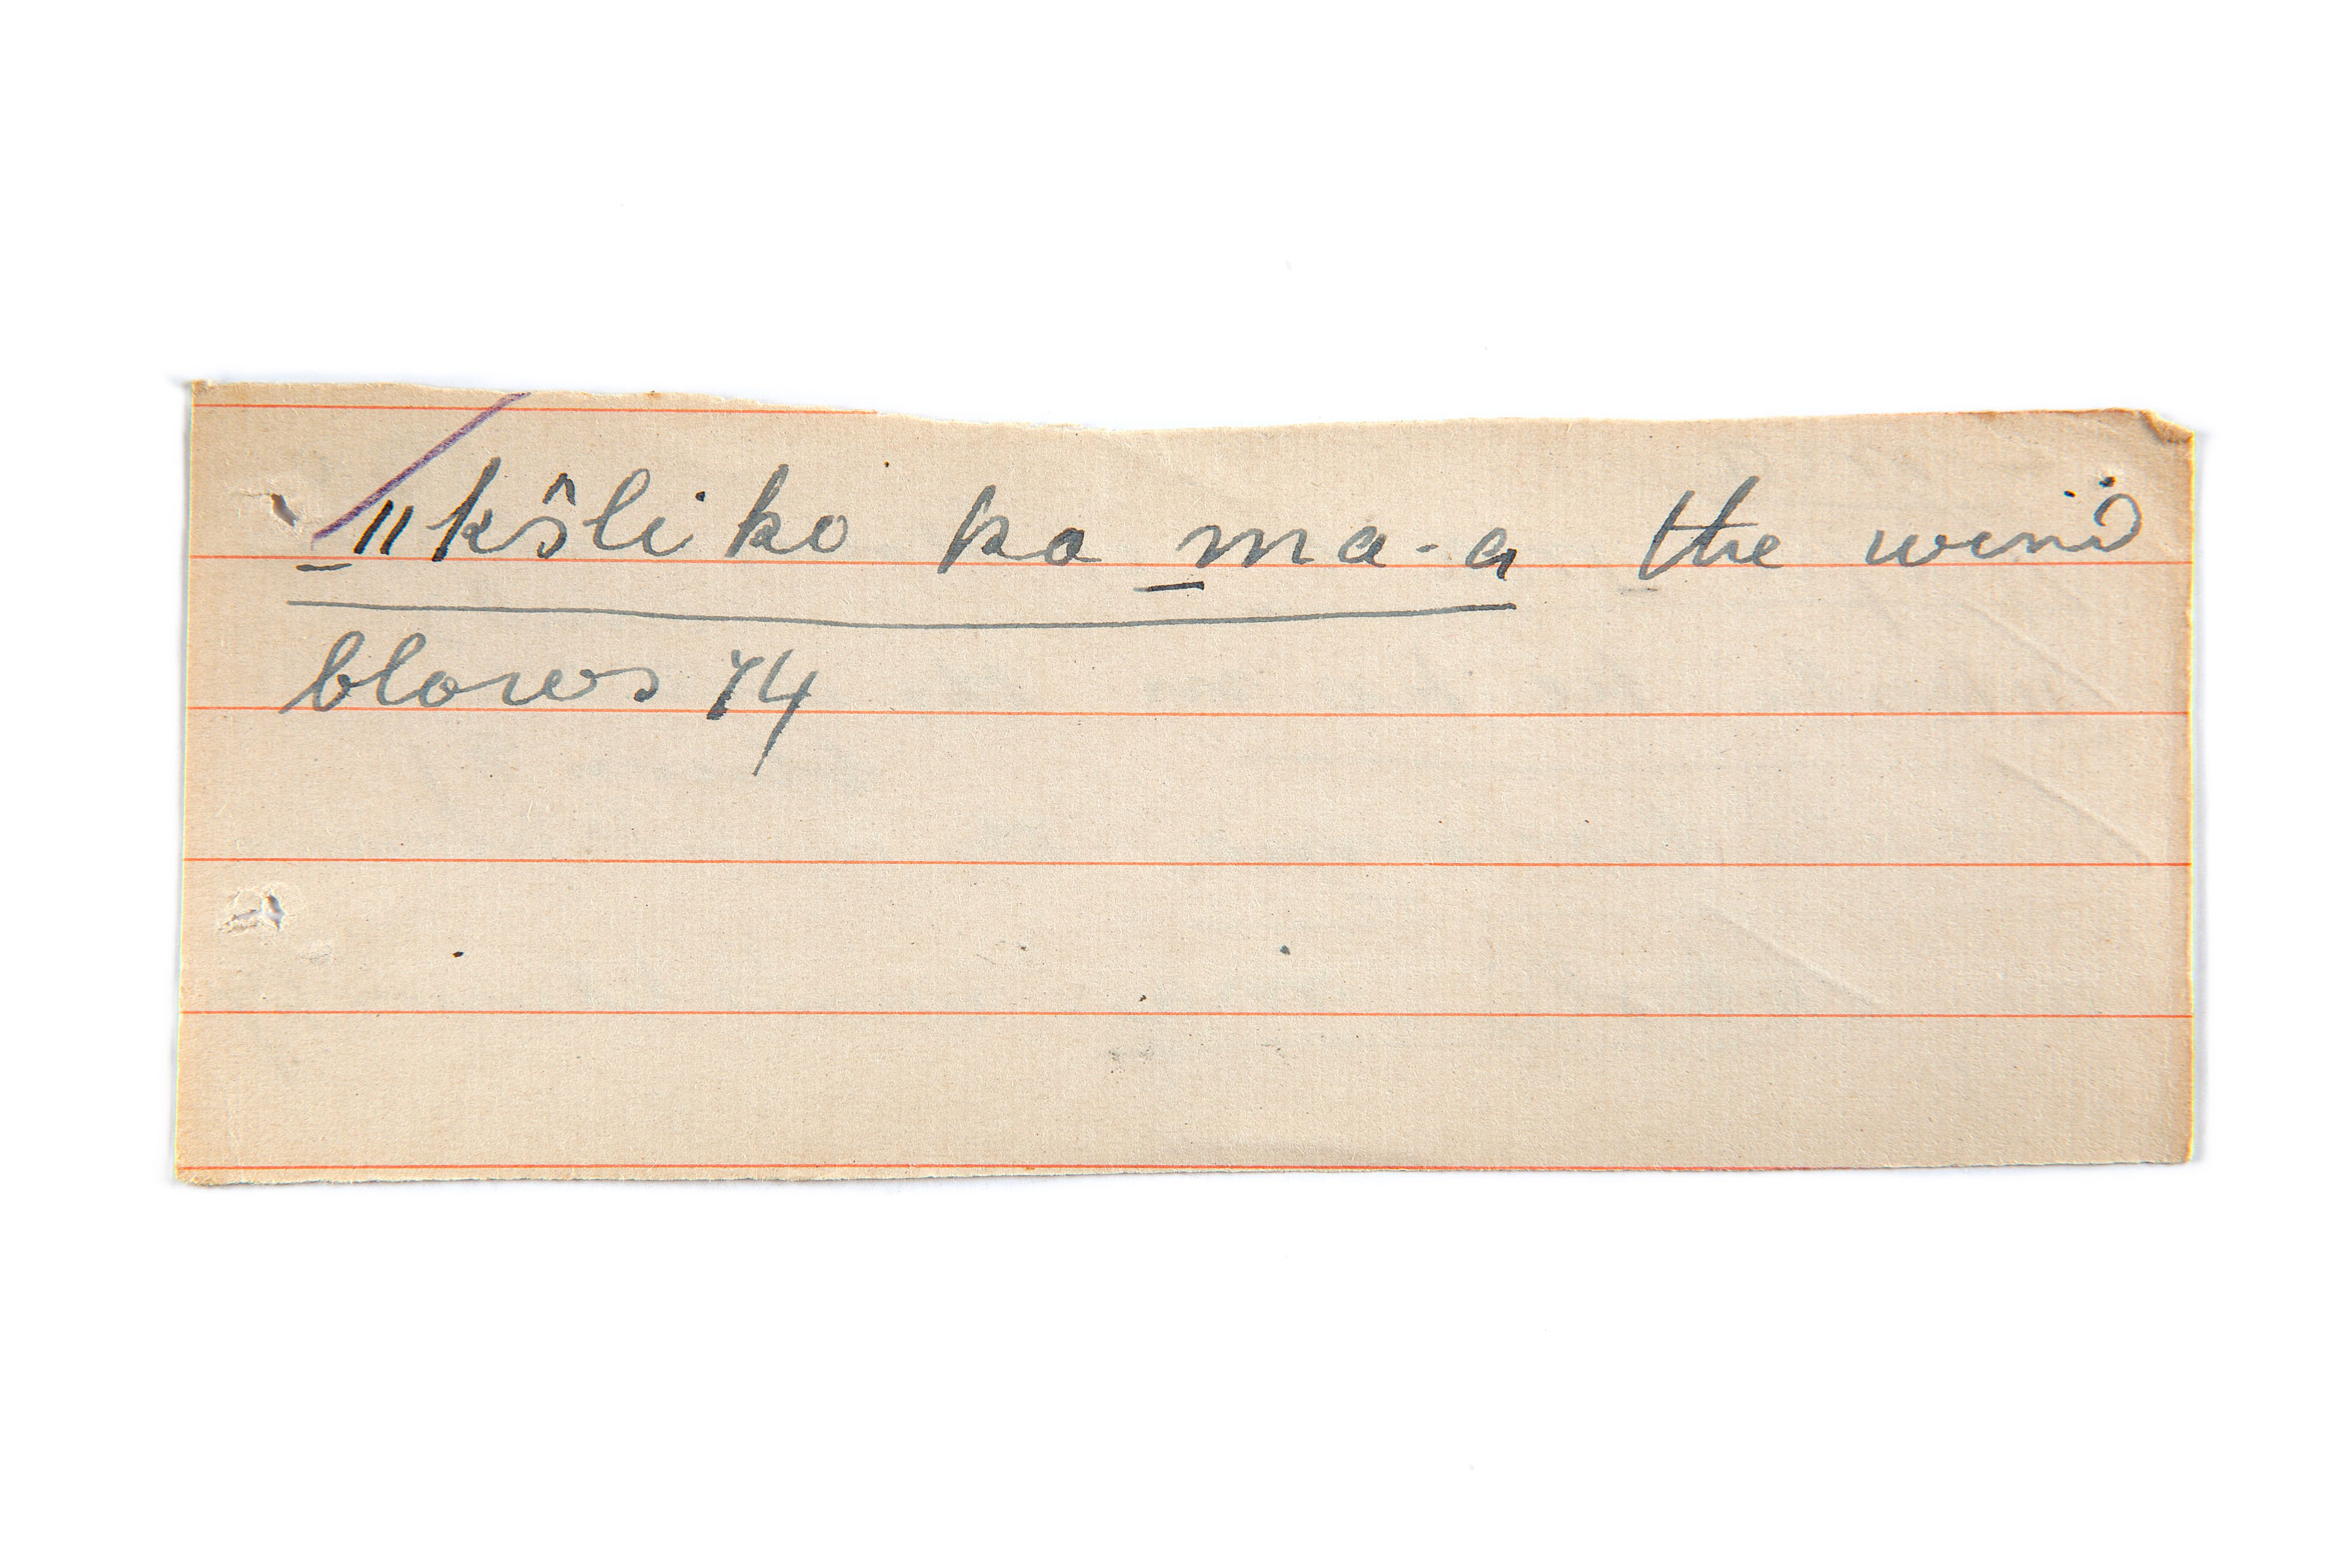 _"kŝliko ka ma-a the wind
blows 74